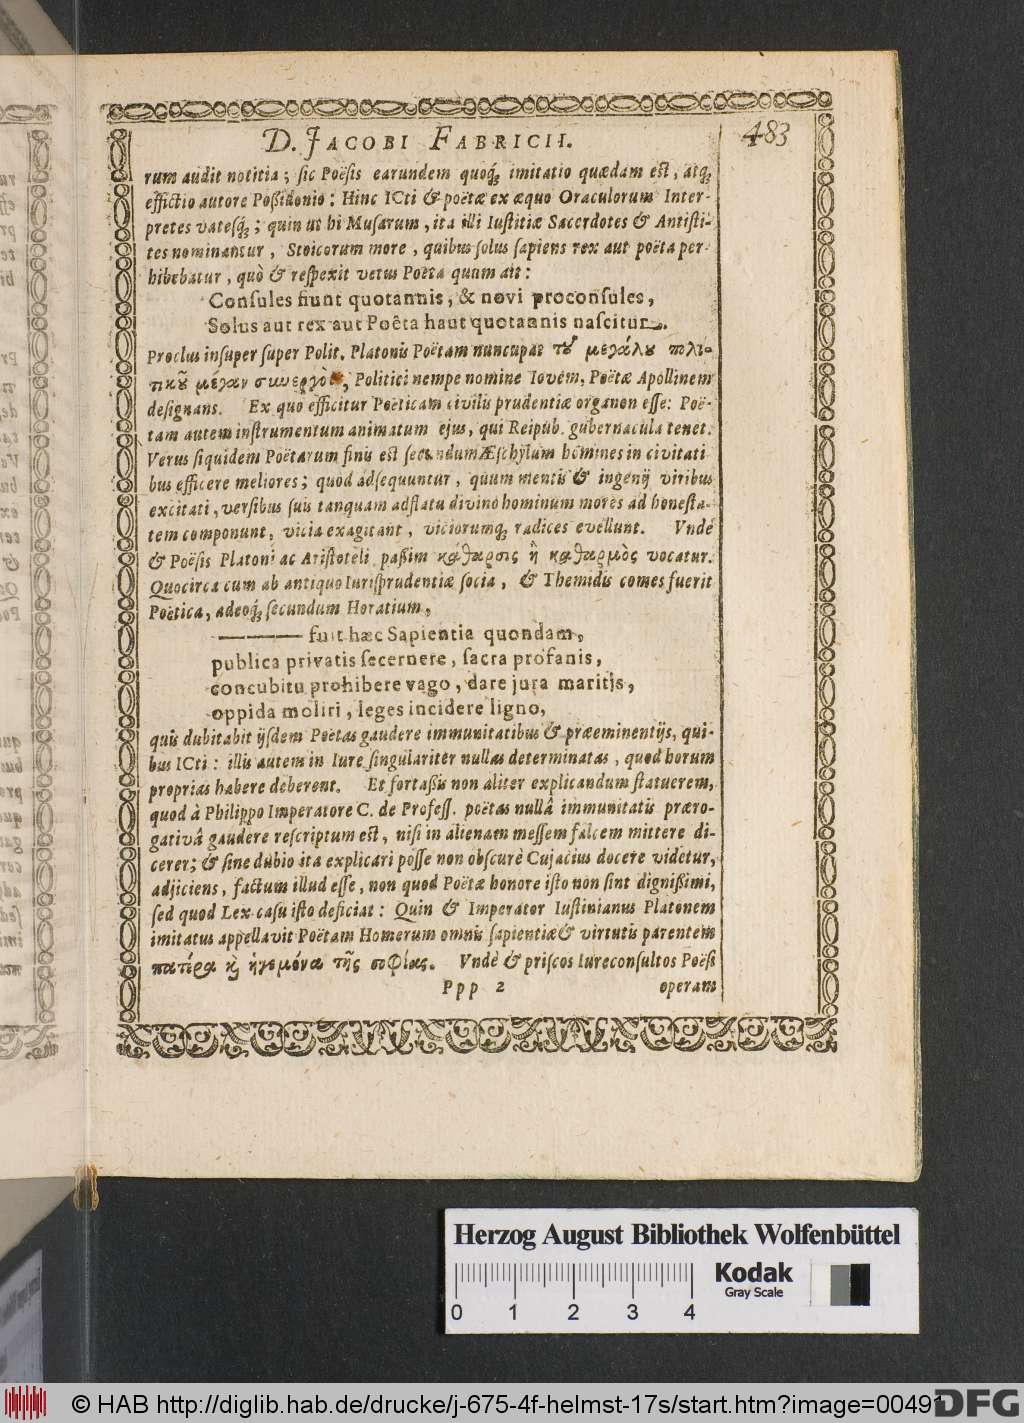 D. JACOBI FABRICII.
483
rum audit notitia; ſic Poëſis earundem quoq́; imitatio quædam eſt, atq́;
effictio autore Poßidonio: Hinc ICti & poëtæ ex æquo Oraculorum Inter-
pretes vatesq́; ; quin ut hi Muſarum, ita illi Iuſtitiæ Sacerdotes & Antiſti-
tes nominantur, Stoicorum more, quibus ſolus ſapiens rex aut poëta per-
hibebatur, quò & reſpexit vetus Poëta quum ait:
Conſules fiunt quotannis, & novi proconſules,
Solus aut rex aut Poêta haut quotannis naſcitur.
Proclus inſuper ſuper Polit. Platonis Poëtam nuncupat τȣ͂ μεγάλȣ πολι-
τικȣ͂ μέγαν συνεργὸν, Politici nempe nomine Iovem, Poëtæ Apollinem
deſignans. Ex quo efficitur Poëticam civilis prudentiæ organon eſſe: Poë-
tam autem inſtrumentum animatum ejus, qui Reipub. gubernacula tenet.
Verus ſiquidem Poëtarum finis eſt ſecundum Æſchylum homines in civitati-
bus efficere meliores; quod adſequuntur, quum mentis & ingenij viribus
excitati, verſibus ſuis tanquam adflatu divino hominum mores ad honeſta-
tem componunt, vicia exagitant, viciorumq́; radices evellunt. Vnde
& Poëſis Platoni ac Ariſtoteli paßim κάθαρσις ἢ καθαρμὸς vocatur.
Quocirca cum ab antiquo Iurisprudentiæ ſocia, & Themidis comes fuerit
Poëtica, adeoq́; ſecundum Horatium,
——— fuit hæc Sapientia quondam,
publica privatis ſecernere, ſacra profanis,
concubitu prohibere vago, dare jura maritis,
oppida moliri, leges incidere ligno,
quis dubitabit ijsdem Poëtas gaudere immunitatibus & præeminentijs, qui-
bus ICti: illis autem in Iure ſingulariter nullas determinatas, quod horum
proprias habere deberent. Et fortaßis non aliter explicandum ſtatuerem,
quod à Philippo Imperatore C. de Profeſſ. poëtas nullâ immunitatis præro-
gativâ gaudere reſcriptum eſt, niſi in alienam meſſem falcem mittere di-
cerer; & ſine dubio ita explicari poſſe non obſcurè Cujacius docere videtur,
adjiciens, factum illud eſſe, non quod Poëtæ honore iſto non ſint dignißimi,
ſed quod Lex caſu iſto deficiat: Quin & Imperator Iuſtinianus Platonem
imitatus appellavit Poëtam Homerum omnis ſapientiæ & virtutis parentem
πατέρα κ̀ ἡγεμόνα τῆς σοφίας. Vndè & priſcos Iureconſultos Poëſi
Ppp 2 operam
Herzog August Bibliothek Wolfenbüttel
Kodak
Gray Scale
0 1 2 3 4
© HAB http://diglib.hab.de/drucke/j-675-4f-helmst-17s/start.htm?image=00491
DFG